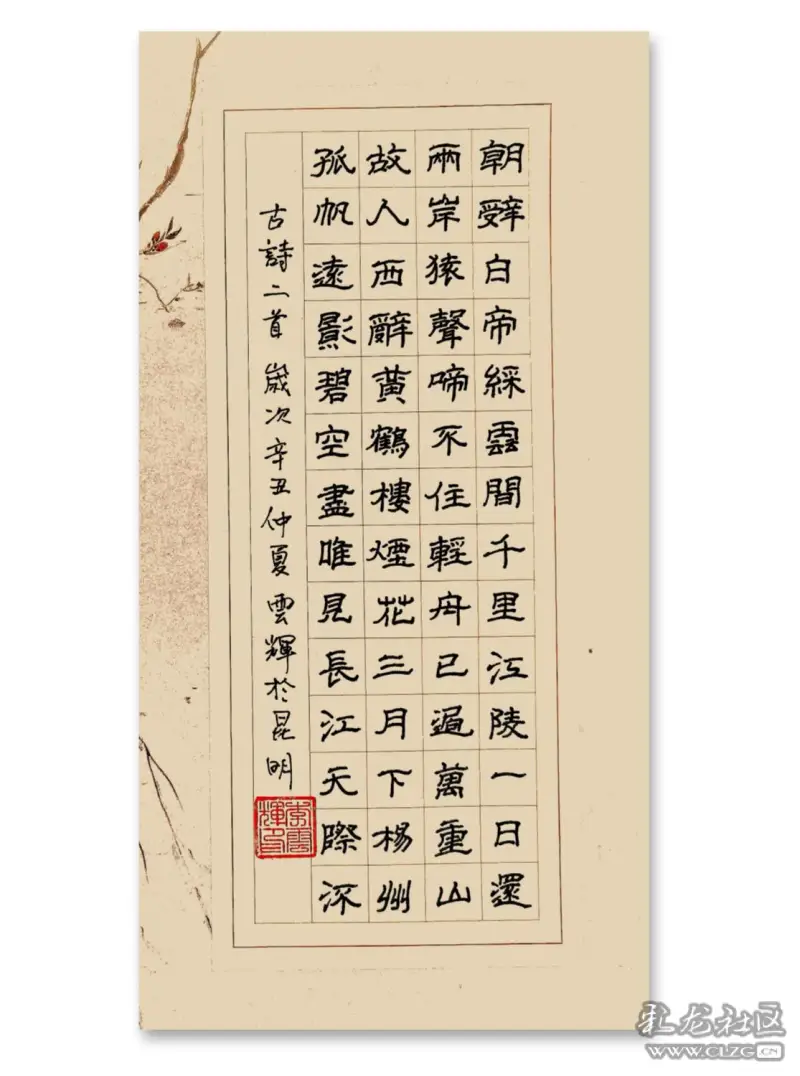 朝辤白帝綵雲間千里江陵一日還
兩岸猿聲啼不住輕舟已過萬重山
故人西辭黃鶴樓煙花三月下楊州
孤帆遠影碧空盡唯見長江天際流
古詩二首 歲次辛丑仲夏 雲輝於昆明
彩龙社区
www.CLZG.CN